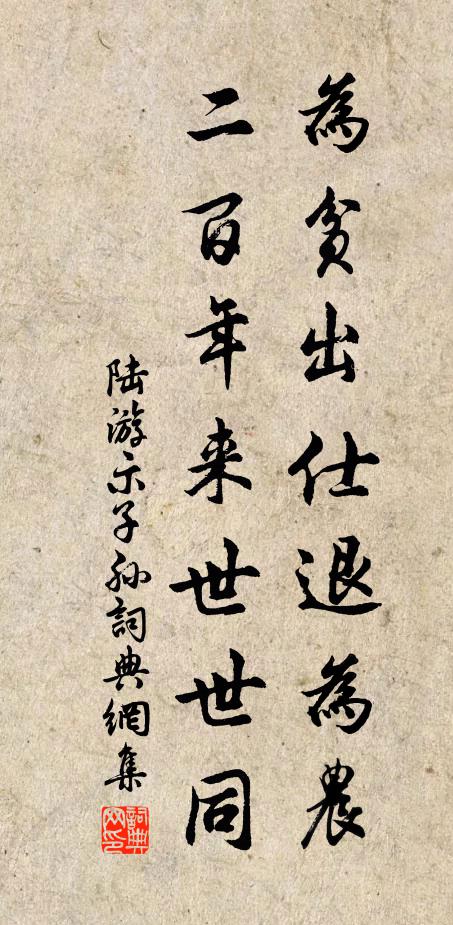 為貧出仕退為農
二百年来世世同
陆游示子孙詞典網集
詞典
网印